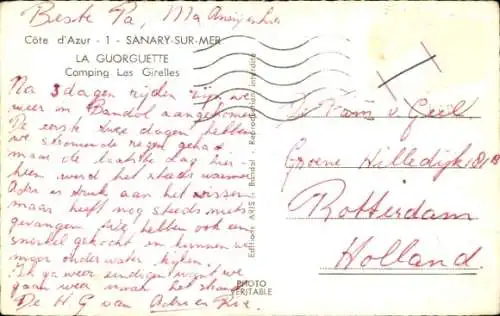 Beste Pa, Ma
Côte d'Azur - 1 - SANARY-SUR-MER
LA GUORGUETTE
Camping Les Girelles
Na 3 dagen rijden zijn we
weer in Bandol aangekomen
De eerste twee dagen hebben
we stromende regen gehad
maar de laatste dag hier
heen werd het steeds warmer
is druk aan het vissen
maar heeft nog steeds niets
gevangen. hebben ook een
snorkel gekocht en kunnen we
onder water kijken.
Ik ga weer eindigen want we
gaan weer naar het strand
De H G van
Editions ARIS - Bandol - Reproduction interdite
PHOTO
VERITABLE
v. Geel
Groene Hilledijk 181B
Rotterdam
Holland.